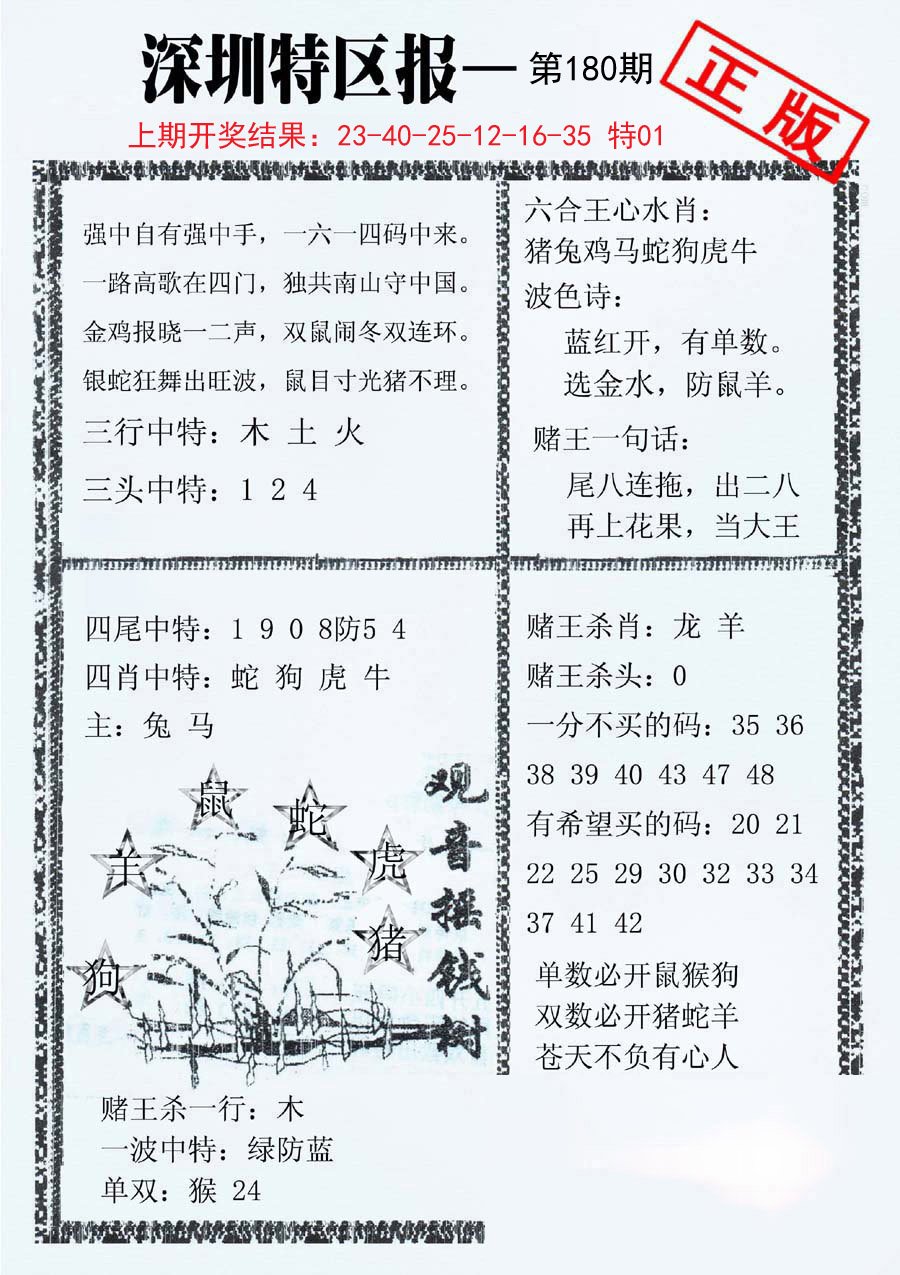 深圳特区报— 第180期
正版
上期开奖结果：23-40-25-12-16-35 特01
强中自有强中手，一六一四码中来。
一路高歌在四门，独共南山守中国。
金鸡报晓一二声，双鼠闹冬双连环。
银蛇狂舞出旺波，鼠目寸光猪不理。
三行中特：木 土 火
三头中特：1 2 4
六合王心水肖：
猪兔鸡马蛇狗虎牛
波色诗：
蓝红开，有单数。
选金水，防鼠羊。
赌王一句话：
尾八连拖，出二八
再上花果，当大王
四尾中特：1 9 0 8防5 4
四肖中特：蛇 狗 虎 牛
主：兔 马
鼠
蛇
羊
虎
猪
狗
观音摇钱树
赌王杀一行：木
一波中特：绿防蓝
单双：猴 24
赌王杀肖：龙 羊
赌王杀头：0
一分不买的码：35 36
38 39 40 43 47 48
有希望买的码：20 21
22 25 29 30 32 33 34
37 41 42
单数必开鼠猴狗
双数必开猪蛇羊
苍天不负有心人